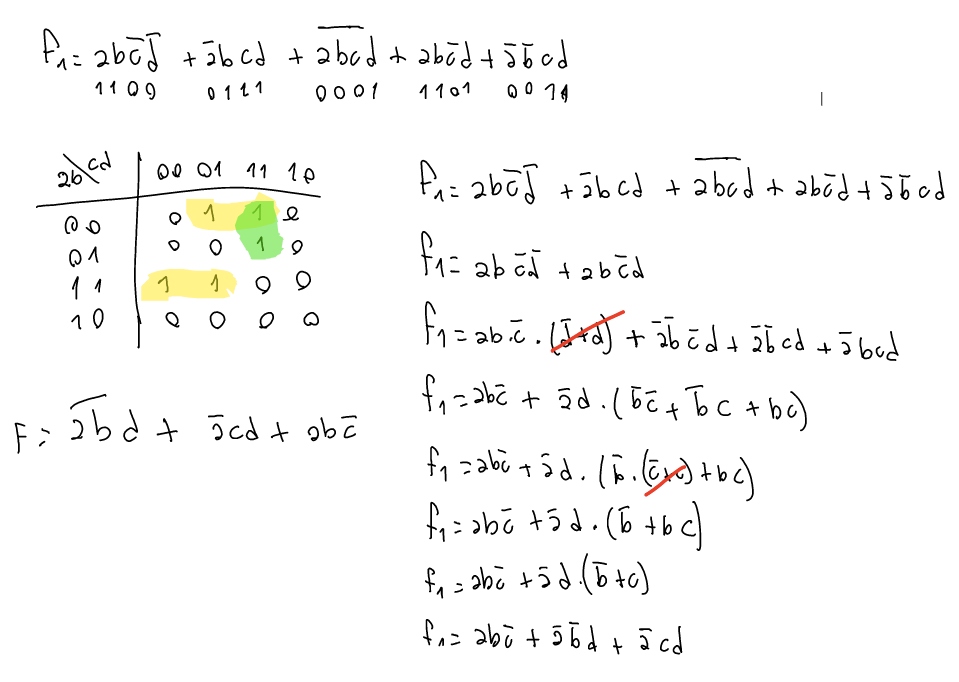 f₁= abc̅d̅ + a̅bcd + a̅b̅c̅d + abc̅d + a̅b̅cd
1100 0111 0001 1101 0011
ab\cd 00 01 11 10
00 0 1 1 0
01 0 0 1 0
11 1 1 0 0
10 0 0 0 0
F= a̅b̅d + a̅cd + abc̅
f₁= abc̅d̅ + a̅bcd + a̅b̅c̅d + abc̅d + a̅b̅cd
f₁= abc̅d̅ + abc̅d
f₁= abc̅ . (d̅+d) + a̅b̅c̅d + a̅b̅cd + a̅bcd
f₁= abc̅ + a̅d . (b̅c̅ + b̅c + bc)
f₁= abc̅ + a̅d . (b̅ . (c̅+c) + bc)
f₁= abc̅ + a̅d . (b̅ + bc)
f₁= abc̅ + a̅d . (b̅+c)
f₁= abc̅ + a̅b̅d + a̅cd